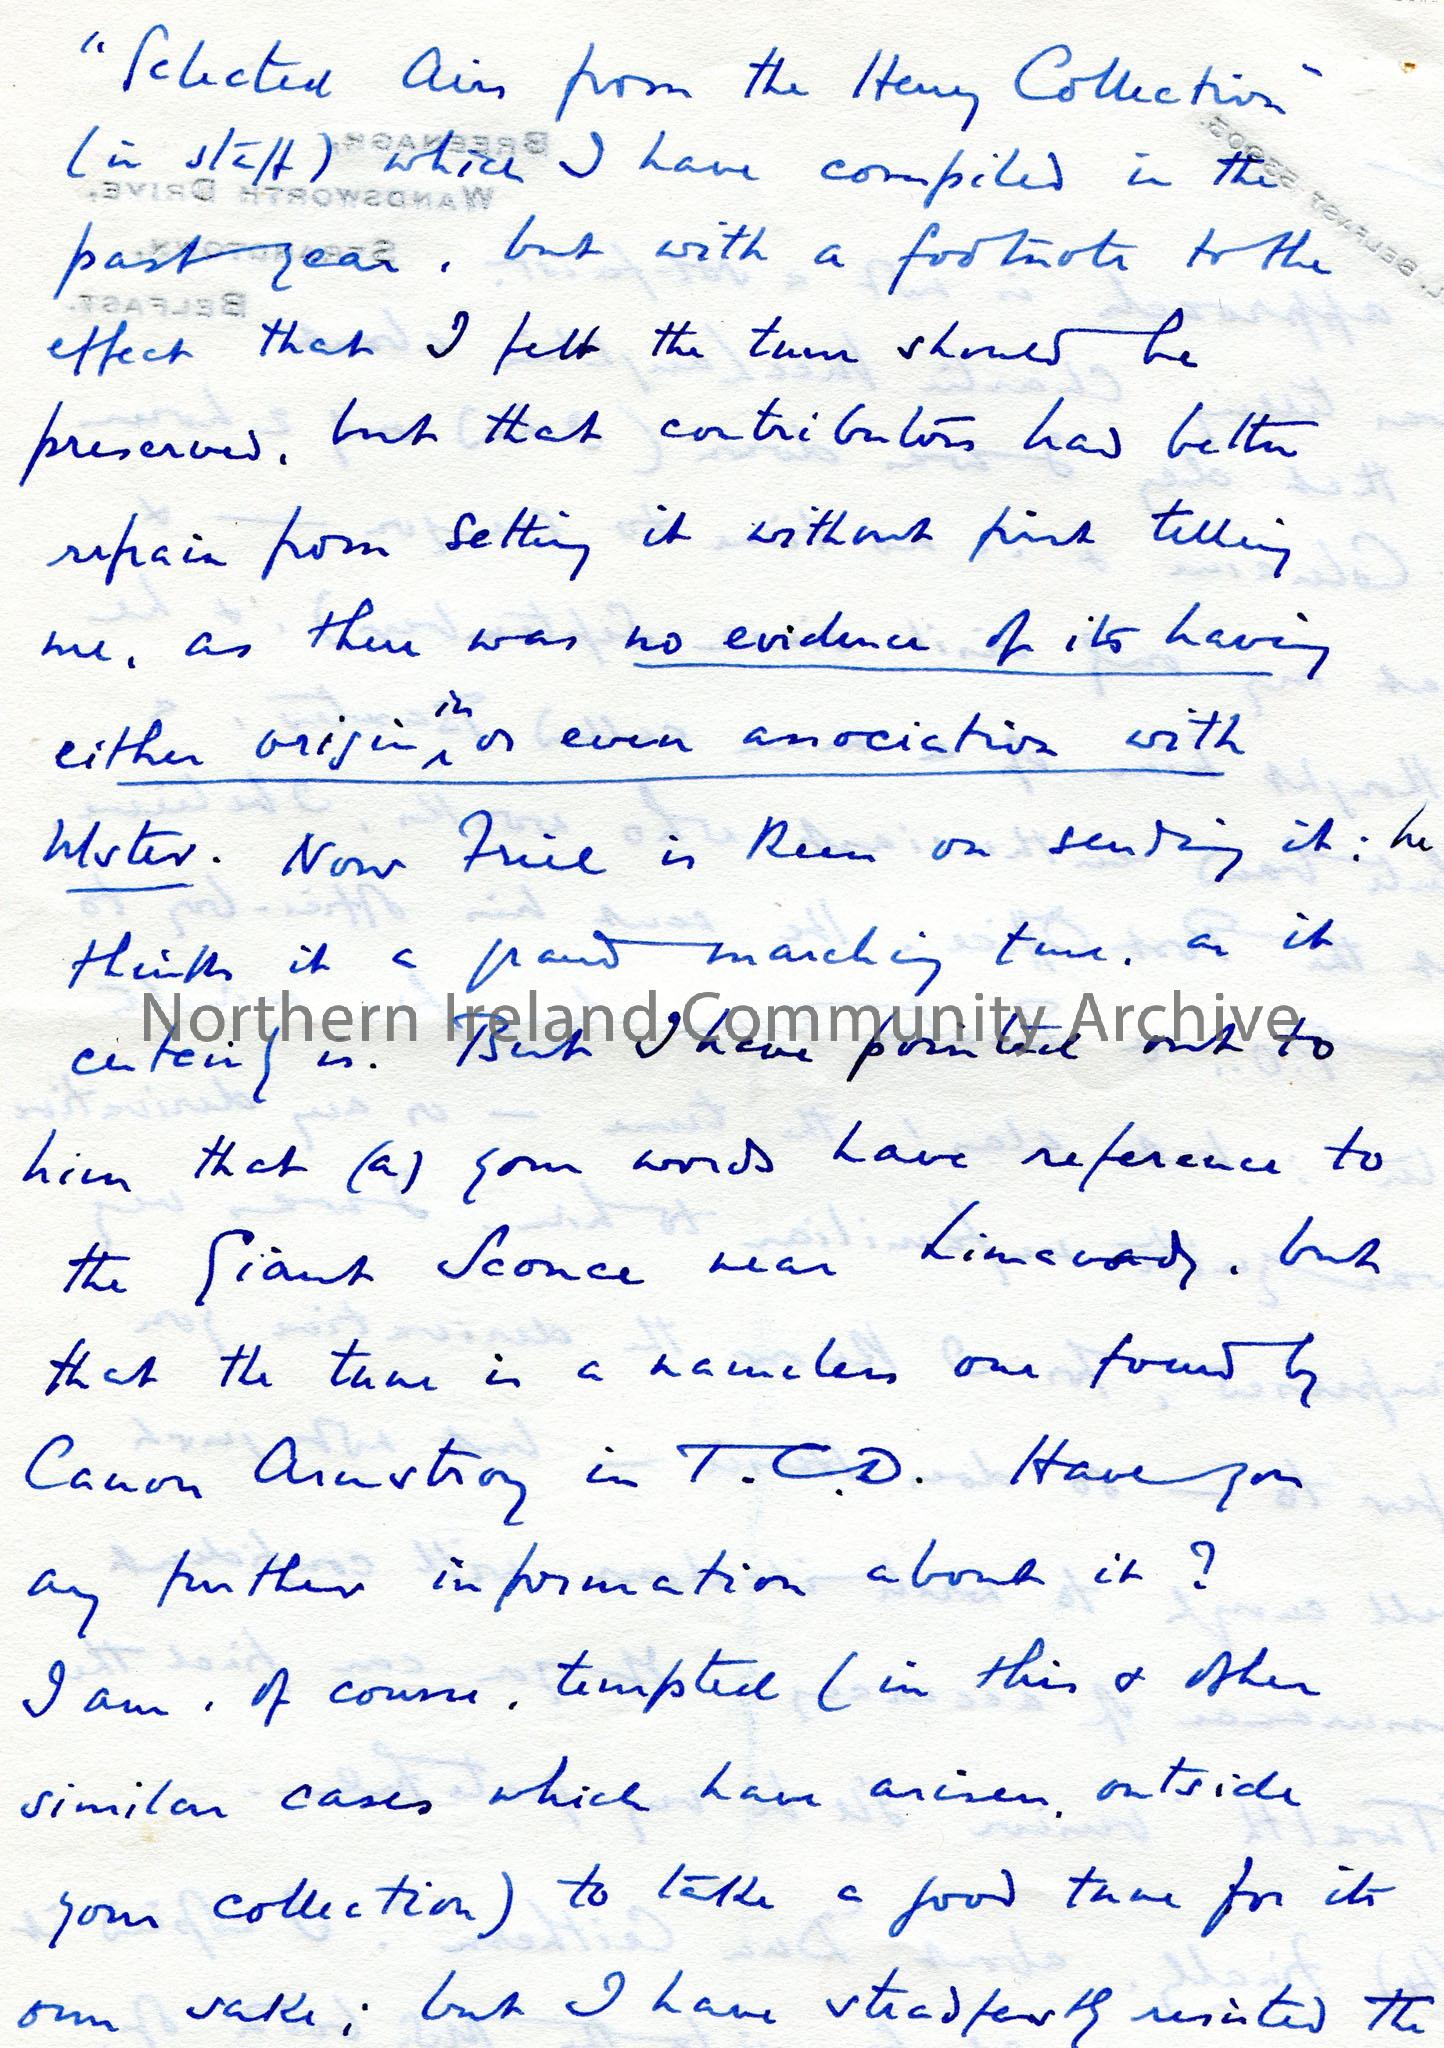 "Selected Airs from the Henry Collection"
(in staff) which I have compiled in the
past year, but with a footnote to the
effect that I felt the tune should be
preserved, but that contributors had better
refrain from setting it without first telling
me, as there was no evidence of its having
either origin in or even association with
Ulster. Now Friel is keen on sending it; he
thinks it a grand marching tune, as it
certainly is. But I have pointed out to
him that (a) your words have reference to
the Giant Sconce near Limavady, but
that the tune is a nameless one found by
Canon Armstrong in T.C.D. Have you
any further information about it?
I am, of course, tempted (in this & other
similar cases which have arisen, outside
your collection) to take a good tune for its
own sake; but I have steadfastly resisted the
Northern Ireland Community Archive
BREENAGH,
WANDSWORTH DRIVE,
BELFAST.